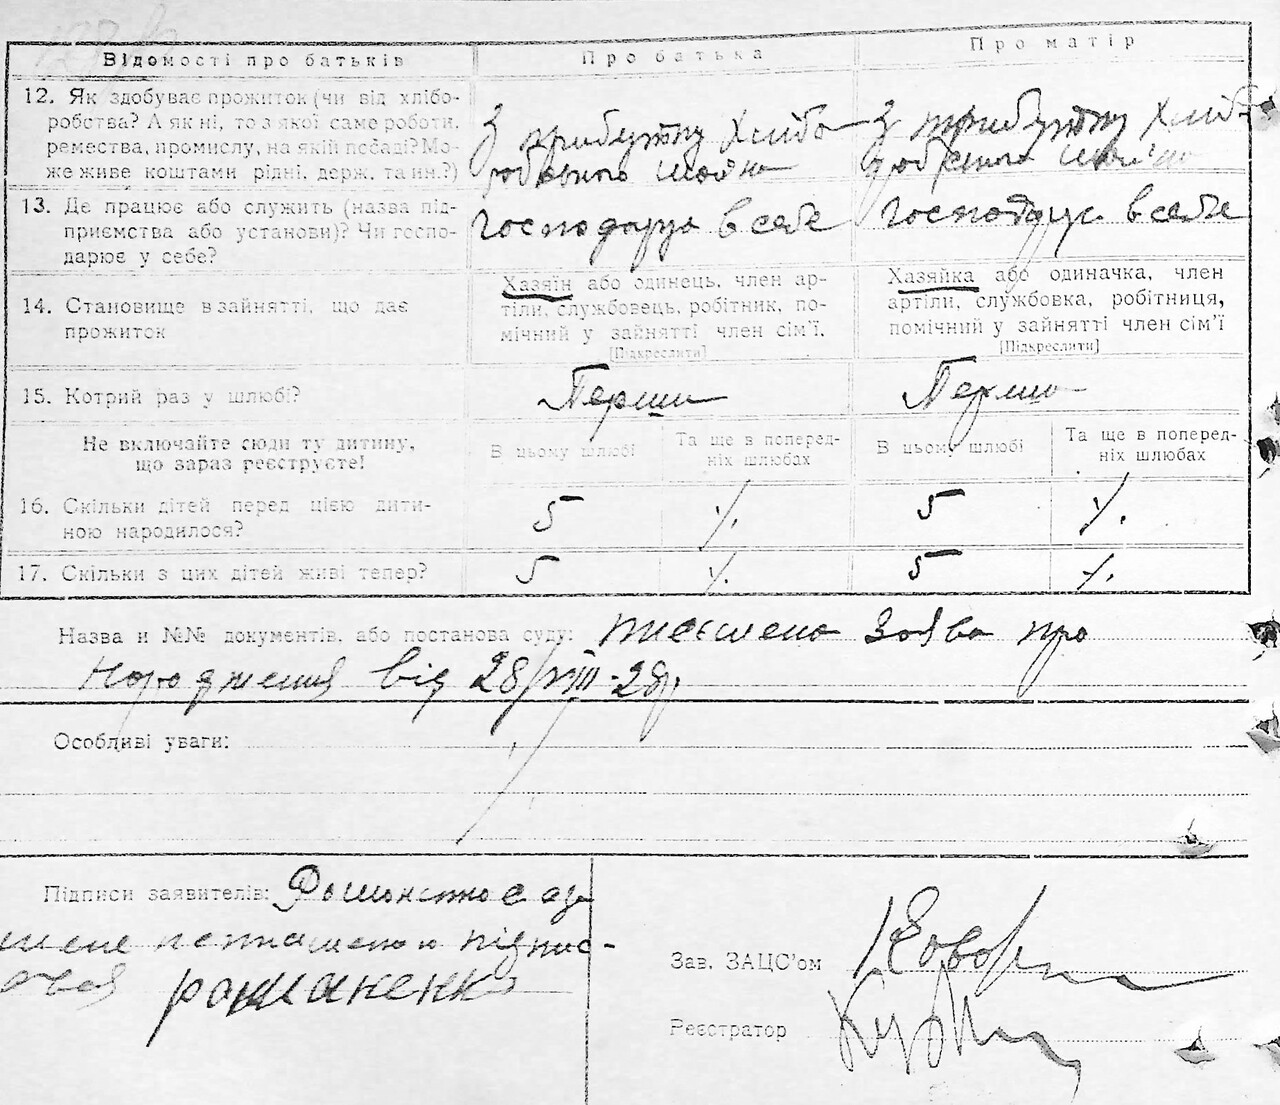 Відомості про батьків Про батька Про матір
12. Як здобуває прожиток (чи від хлібо-
робства? А як ні, то з якої саме роботи,
ремества, промислу, на якій посаді? Мо-
же живе коштами рідні, держ. та ин.?)
З прибутку хлібо
робського
З прибутку хлібо
13. Де працює або служить (назва під-
приємства або установи)? Чи госпо-
дарює у себе?
Господарує в себе Господарує в себе
14. Становище в зайнятті, що дає
прожиток
Хазяїн або одинець, член ар-
тіли, службовець, робітник, по-
мічний у зайнятті член сім'ї.
[Підкреслити]
Хазяйка або одиначка, член
артіли, службовка, робітниця,
помічний у зайнятті член сім'ї
[Підкреслити]
15. Котрий раз у шлюбі? Перши Перша
Не включайте сюди ту дитину,
що зараз реєструєте!
В цьому шлюбі
Та ще в поперед-
ніх шлюбах
В цьому шлюбі
Та ще в поперед-
ніх шлюбах
16. Скільки дітей перед цією дити-
ною народилося?
5 5
17. Скільки з цих дітей живі тепер? 5 5
Назва и №№ документів, або постанова суду: заява про
Народження від 28/VIII-28р.
Особливі уваги:
Підписи заявителів:
Зав. ЗАЦС'ом
Реєстратор